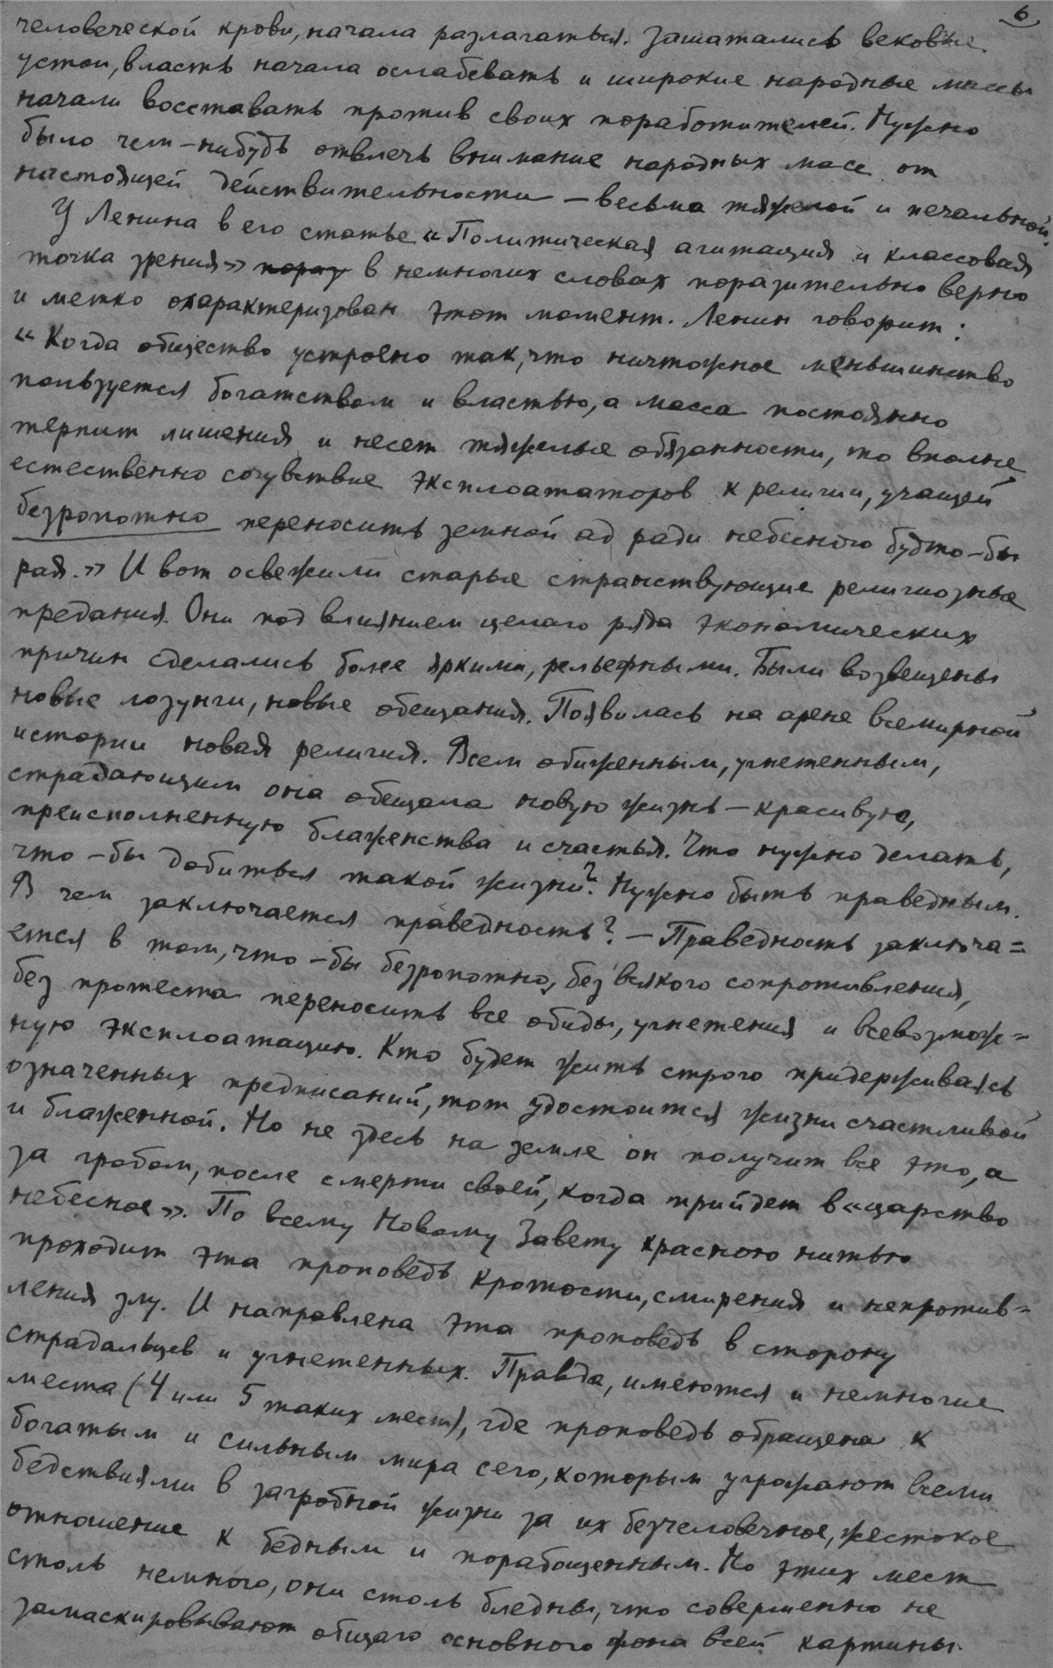 6
человеческой крови, начала разлагаться. Зашатались вековые
устои, власть начала ослабевать и широкие народные массы
начали восставать против своих поработителей. Нужно
было чем-нибудь отвлечь внимание народных масс от
настоящей действительности – весьма тяжелой и печальной.
У Ленина в его статье „Политическая агитация и классовая
точка зрения» в немногих словах поразительно верно
и метко охарактеризован этот момент. Ленин говорит:
„Когда общество устроено так, что ничтожное меньшинство
пользуется богатством и властью, а масса постоянно
терпит лишения и несет тяжелые обязанности, то вполне
естественно сочувствие эксплоататоров к религии, учащей
безропотно переносить земной ад ради небесного будто-бы
рая.» И вот освежили старые странствующие религиозные
предания. Они под влиянием целаго ряда экономических
причин сделались более яркими, рельефными. Были возвещены
новые лозунги, новые обещания. Появилась на арене всемирной
истории новая религия. Всем обиженным, угнетенным,
страдающим она обещала новую жизнь – красивую,
преисполненную блаженства и счастья. Что нужно делать,
что-бы добиться такой жизни? Нужно быть праведным.
В чем заключается праведность? – Праведность заключа=
ется в том, что-бы безропотно, без всякого сопротивления,
без протеста переносить все обиды, угнетения и всевозмож=
ную эксплоатацию. Кто будет жить строго придерживаясь
означенных предписаний, тот удостоится жизни счастливой
и блаженной. Но не здесь на земле он получит все это, а
за гробом, после смерти своей, когда прийдет в „царство
небесное». По всему Новому Завету красною нитью
проходит эта проповедь кротости, смирения и непротив=
ления злу. И направлена эта проповедь в сторону
страдальцев и угнетенных. Правда, имеются и немногие
места (4 или 5 таких мест), где проповедь обращена к
богатым и сильным мира сего, которым угрожают всеми
бедствиями в загробной жизни за их безчеловечное, жестокое
отношение к бедным и порабощенным. Но этих мест
столь немного, они столь бледны, что совершенно не
замаскировывают общаго основного фона всей картины.